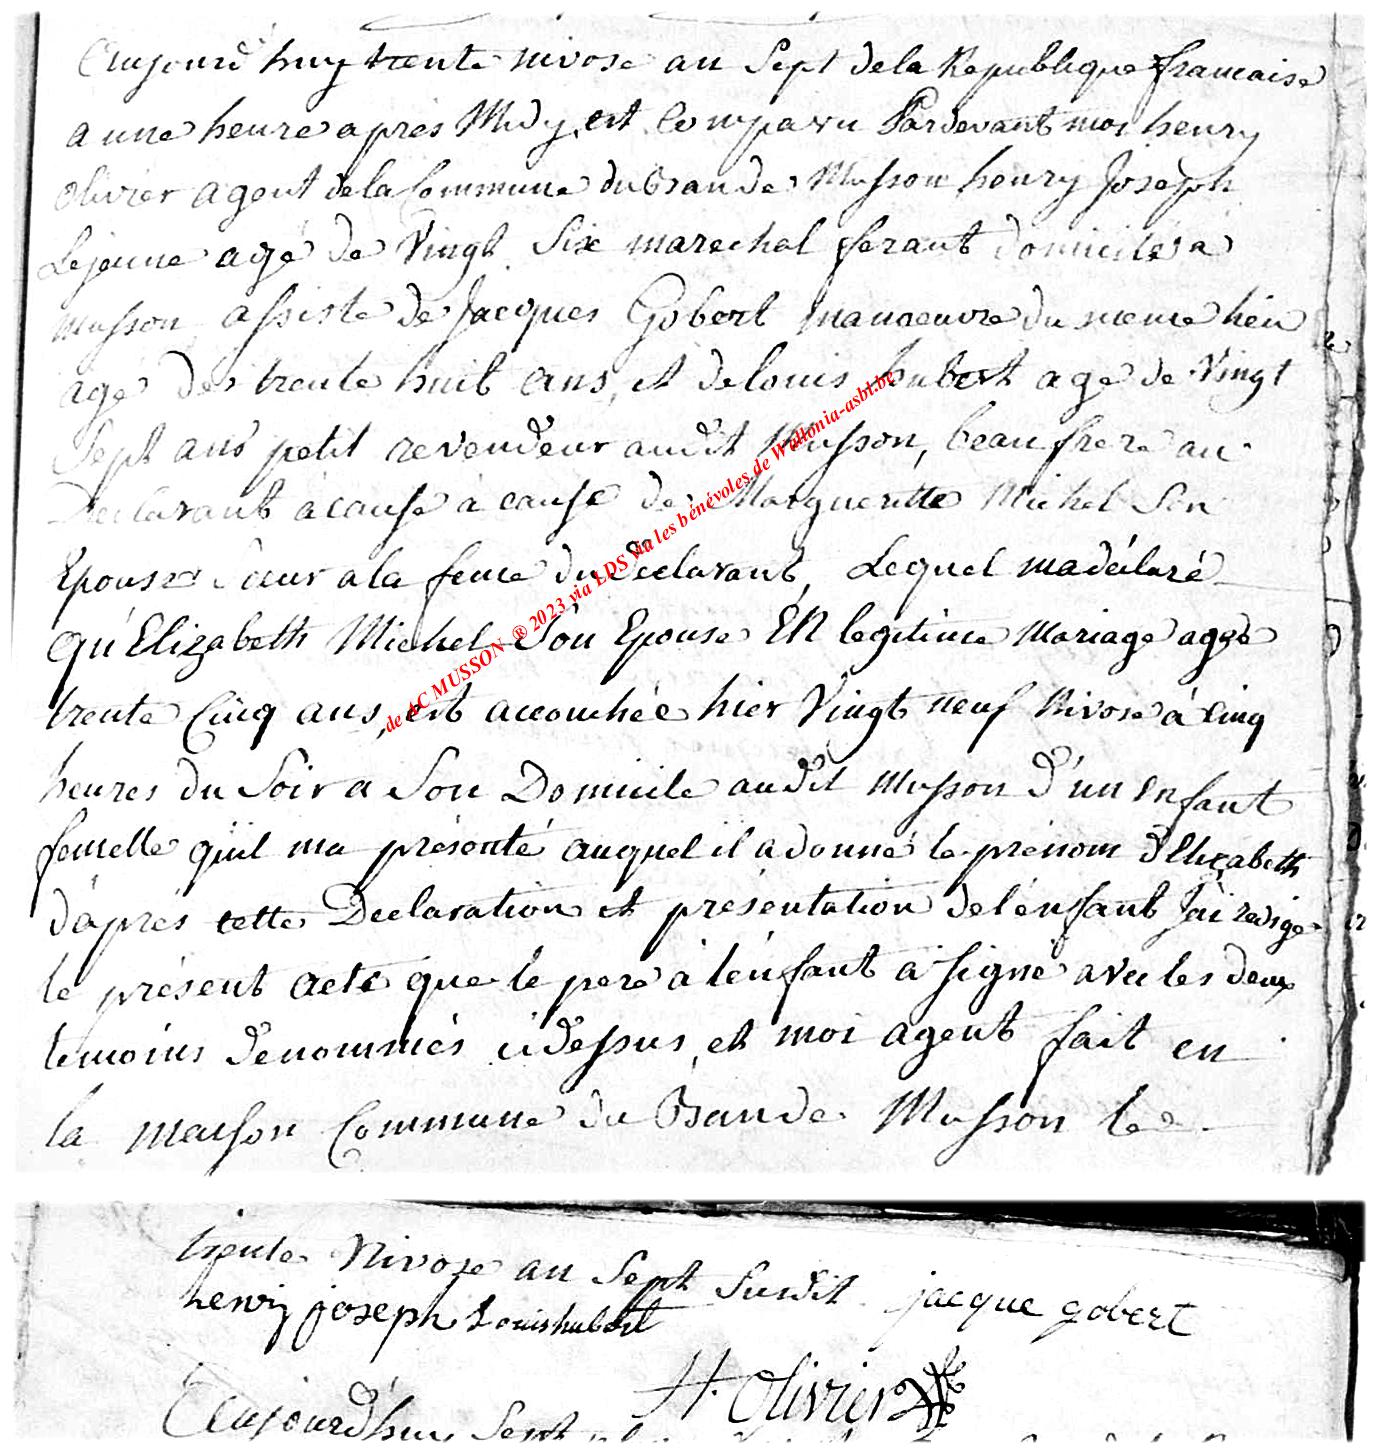 Aujourd'huy trente nivose an Sept dela Republique francaise
a une heure apres Midy, est Comparu Pardevant moi henry
Olivier agent dela Commune du Bande Musson henry Joseph
Lejeune agé de Vingt Six marechal ferant domicilié a
Musson assisté de Jacques Gobert manoeuvre du meme lieu
agé de trente huit ans, et de louis hubert age de Vingt
Sept ans petit revendeur audit Musson, beau frere au
Declarant a cause à cause de Margueritte Michel Son
Epouse Sœur a la feme du Declarant, Lequel ma déclaré
qu'Elizabeth Michel Son Epouse EN legitime Mariage agée
trente Cinq ans, est accouchée hier Vingt neuf Nivose à Cinq
heures du Soir a Son Domicile audit Musson d'un enfant
femelle qu'il ma présenté auquel il a donné le prénom d'Elizabeth
d'après cette Declaration et présentation de l'énfant J'ai redigé
le présent acte que le pere à l'énfant à signé avec les deux
temoins dénommés cidessus, et moi agent fait en
la maison Commune du Bande Musson le
trente Nivose an Sept Susdit jacque gobert
henry joseph Louis hubert
H. Olivier
Aujourd'huy Sept
de AC MUSSON ® 2023 via LDS via les bénévoles de Wallonia-asbl.be